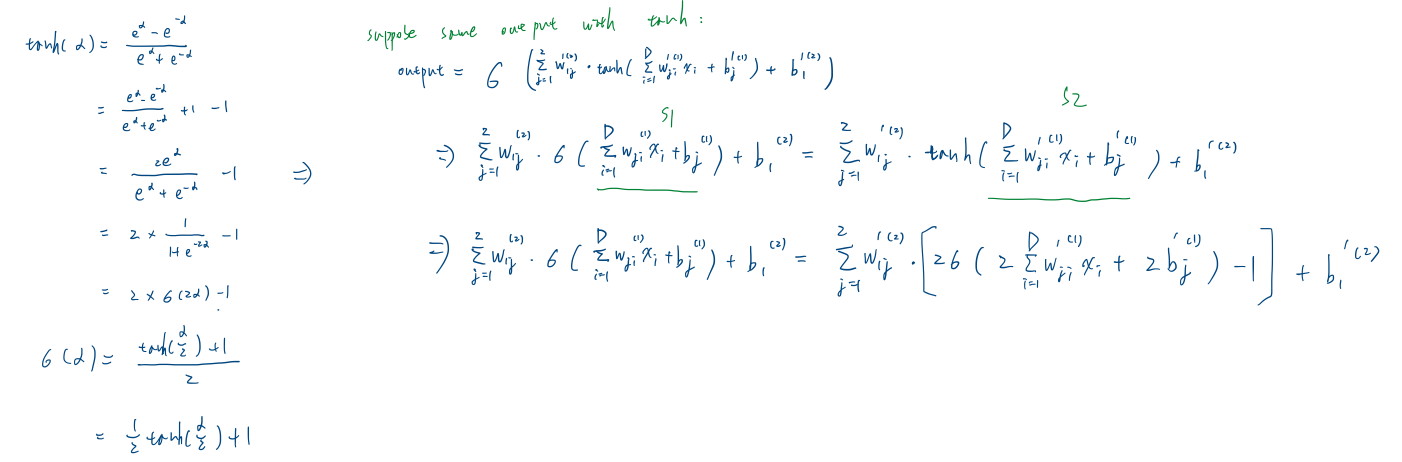 tanh(α) = (e^α - e^-α) / (e^α + e^-α)
= (e^α - e^-α) / (e^α + e^-α) + 1 - 1
= 2e^α / (e^α + e^-α) - 1
= 2 × 1 / (1 + e^-2α) - 1
= 2 × 6(2α) - 1
6(α) = (tanh(α/2) + 1) / 2
= 1/2 tanh(α/2) + 1
⇒
suppose same output with tanh :
output = 6 ( Σ_{j=1}^{2} w_{1j}'^{(2)} · tanh( Σ_{i=1}^{D} w_{ji}'^{(1)} x_i + b_j'^{(1)} ) + b_1'^{(2)} )
S1 S2
⇒ Σ_{j=1}^{2} w_{1j}^{(2)} · 6 ( Σ_{i=1}^{D} w_{ji}^{(1)} x_i + b_j^{(1)} ) + b_1^{(2)} = Σ_{j=1}^{2} w_{1j}'^{(2)} · tanh( Σ_{i=1}^{D} w_{ji}'^{(1)} x_i + b_j'^{(1)} ) + b_1'^{(2)}
⇒ Σ_{j=1}^{2} w_{1j}^{(2)} · 6 ( Σ_{i=1}^{D} w_{ji}^{(1)} x_i + b_j^{(1)} ) + b_1^{(2)} = Σ_{j=1}^{2} w_{1j}'^{(2)} · [ 26 ( 2 Σ_{i=1}^{D} w_{ji}'^{(1)} x_i + 2 b_j'^{(1)} ) - 1 ] + b_1'^{(2)}